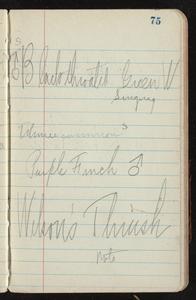 75
♂ Black throated Green W
Singing
Purple Finch ♂
Wilson's Thrush
note